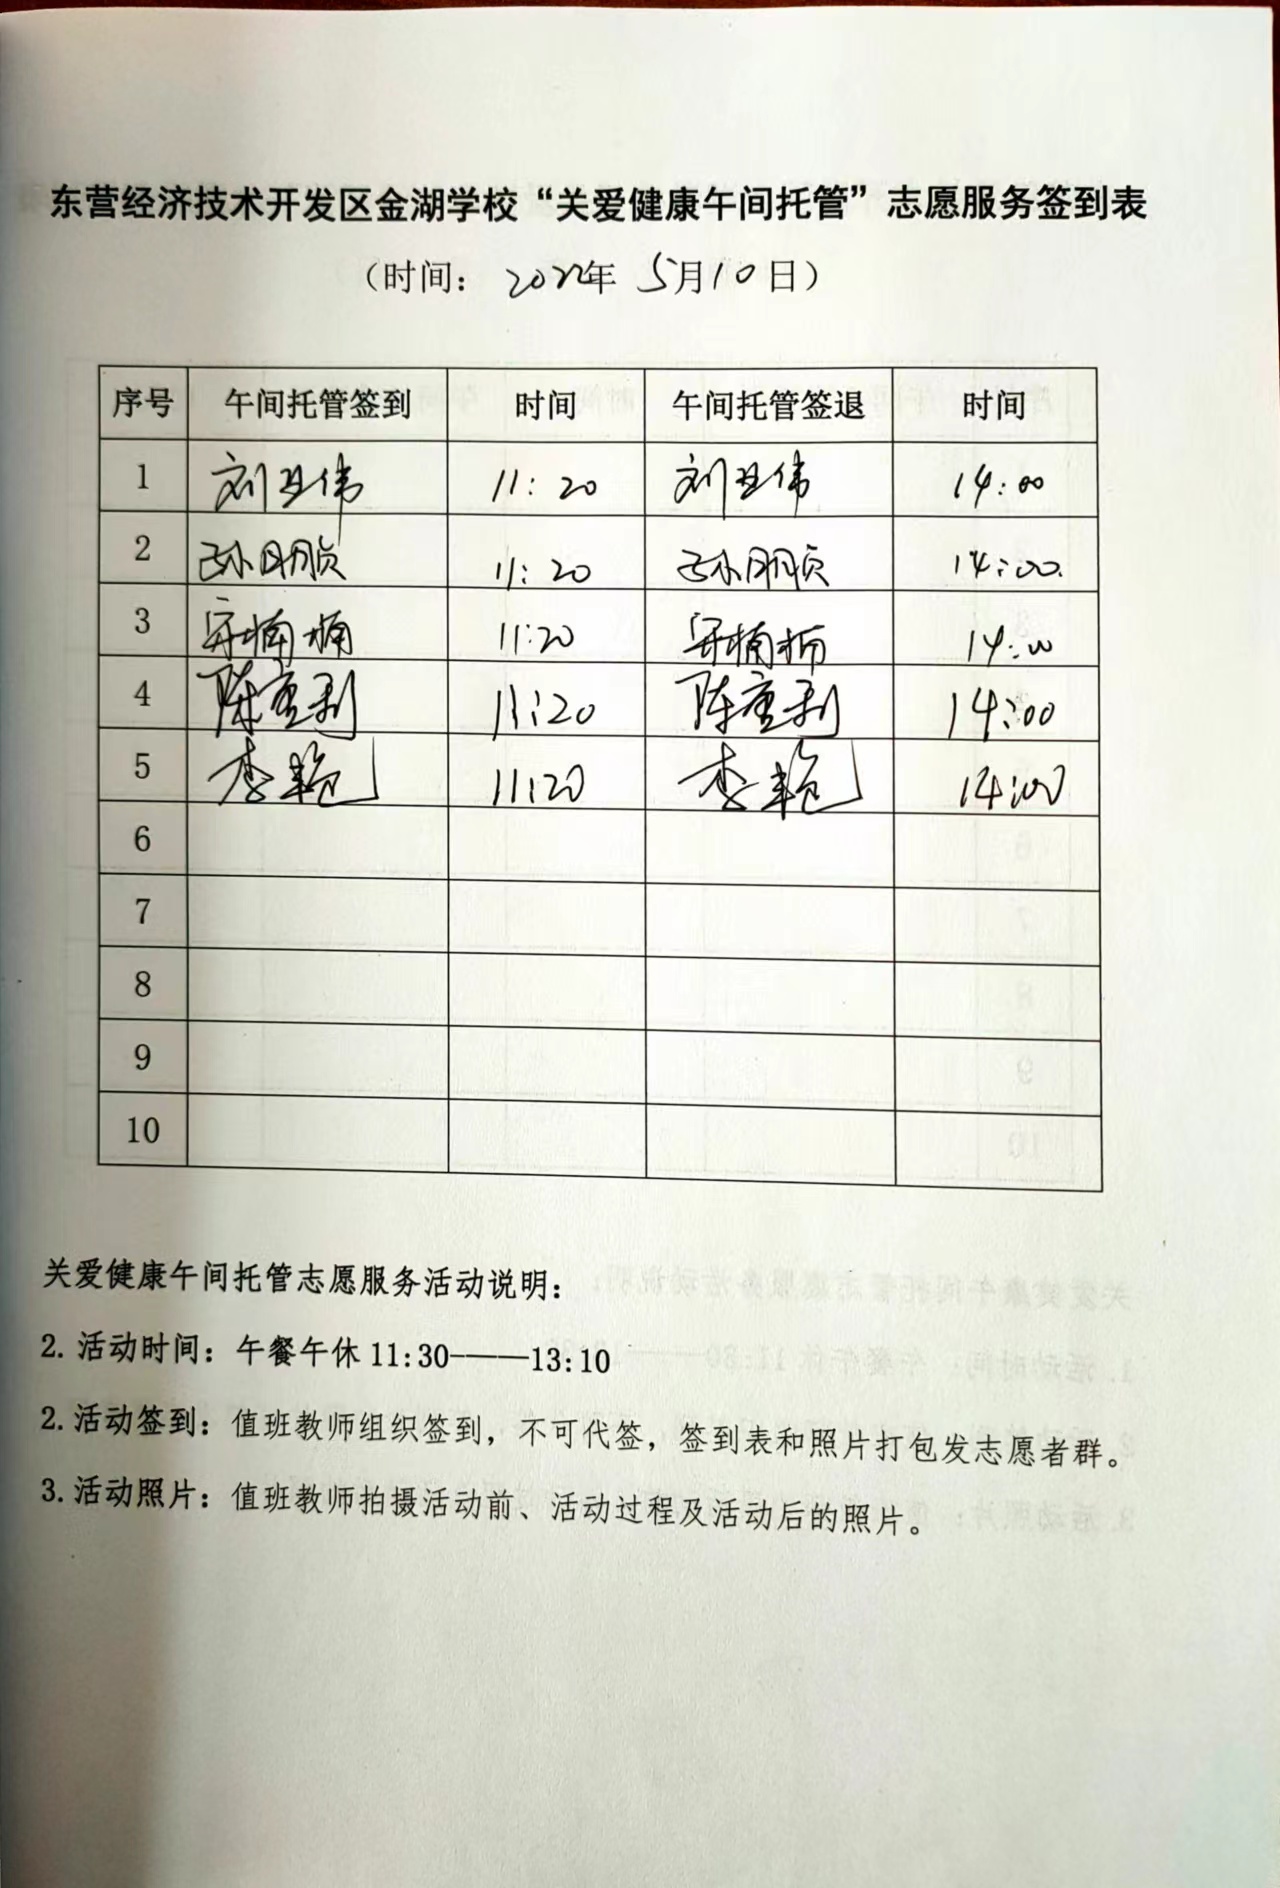 东营经济技术开发区金湖学校“关爱健康午间托管”志愿服务签到表
（时间：2022年 5月10日）
序号 午间托管签到 时间 午间托管签退 时间
1 刘卫伟 11:20 刘卫伟 14:00
2 孙朋贞 11:20 孙朋贞 14:00.
3 楠楠 11:20 楠楠 14:00
4 陈 11:20 陈 14:00
5 李艳 11:20 李艳 14:00
6
7
8
9
10
关爱健康午间托管志愿服务活动说明：
2. 活动时间：午餐午休 11:30———13:10
2. 活动签到：值班教师组织签到，不可代签，签到表和照片打包发志愿者群。
3. 活动照片：值班教师拍摄活动前、活动过程及活动后的照片。